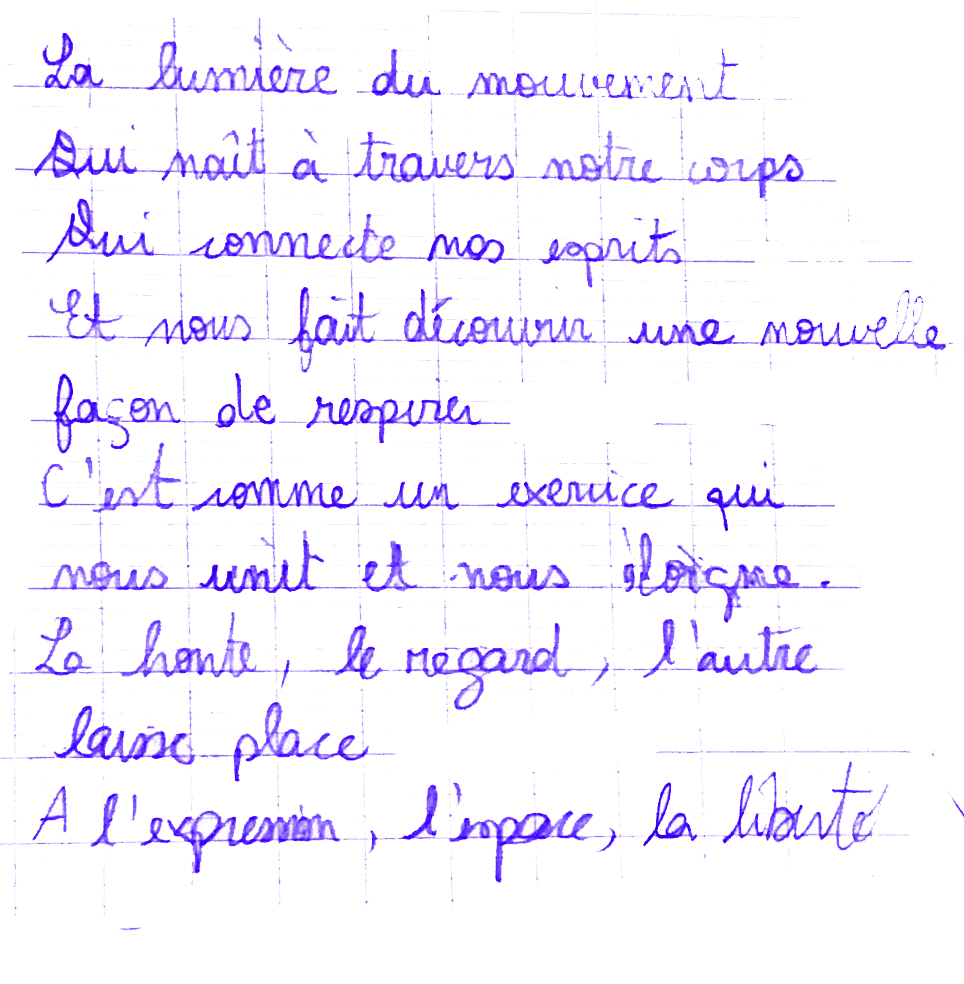 La lumière du mouvement
Qui naît à travers notre corps
Qui connecte nos esprits
Et nous fait découvrir une nouvelle
façon de respirer
C'est comme un exercice qui
nous unit et nous éloigne.
La honte, le regard, l'autre
laisse place
A l'expression, l'espace, la liberté